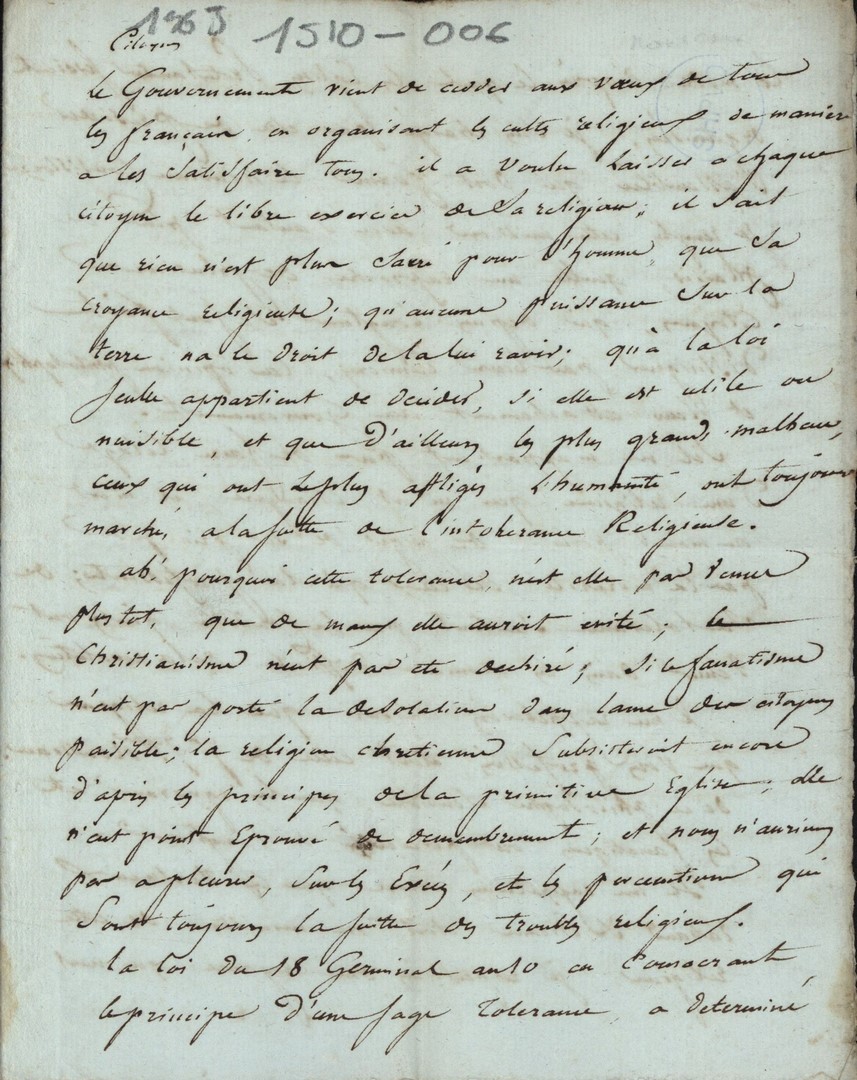 1263
1510-006
Citoyen
Le Gouvernemente vient de ceder aux vœux de tous
les français, en organisant les cultes religieux de maniere
a les Satisfaire tous. il a voulu Laisser a chaque
citoyen le libre exercice de Sa religion; il Sait
que rien n'est plus Sacré pour l'homme, que Sa
croyance religieuse; qu'aucune puissance Sur la
terre na le droit de la lui ravir; qu'à la loi
Seule appartient de decider, si elle est utile ou
nuisible, et que d'ailleurs les plus grands malheurs,
ceux qui ont Le plus affligés L'humanité, ont toujours
marché, a la suitte de l'intolerance Religieuse.
ah! pourquoi cette tolerance, n'est elle pas venue
plus tot, que de maux elle auroit evité; le
Christianisme n'eut pas eté dechiré; Si le fanatisme
n'eut pas porté la desolation dans lame des citoyens
paisible; la religion chretienne Subsisteroit encore
d'apres les principes de la primitive Eglise; elle
n'eut point Eprouvé de demembrement; et nous n'aurions
pas a pleurer, Sur les Excès, et les persecutions qui
Sont toujours la suitte des troubles religieux.
la loi du 18 Germinal an 10 en Consacrant
le principe d'une sage Tolerance, a determiné